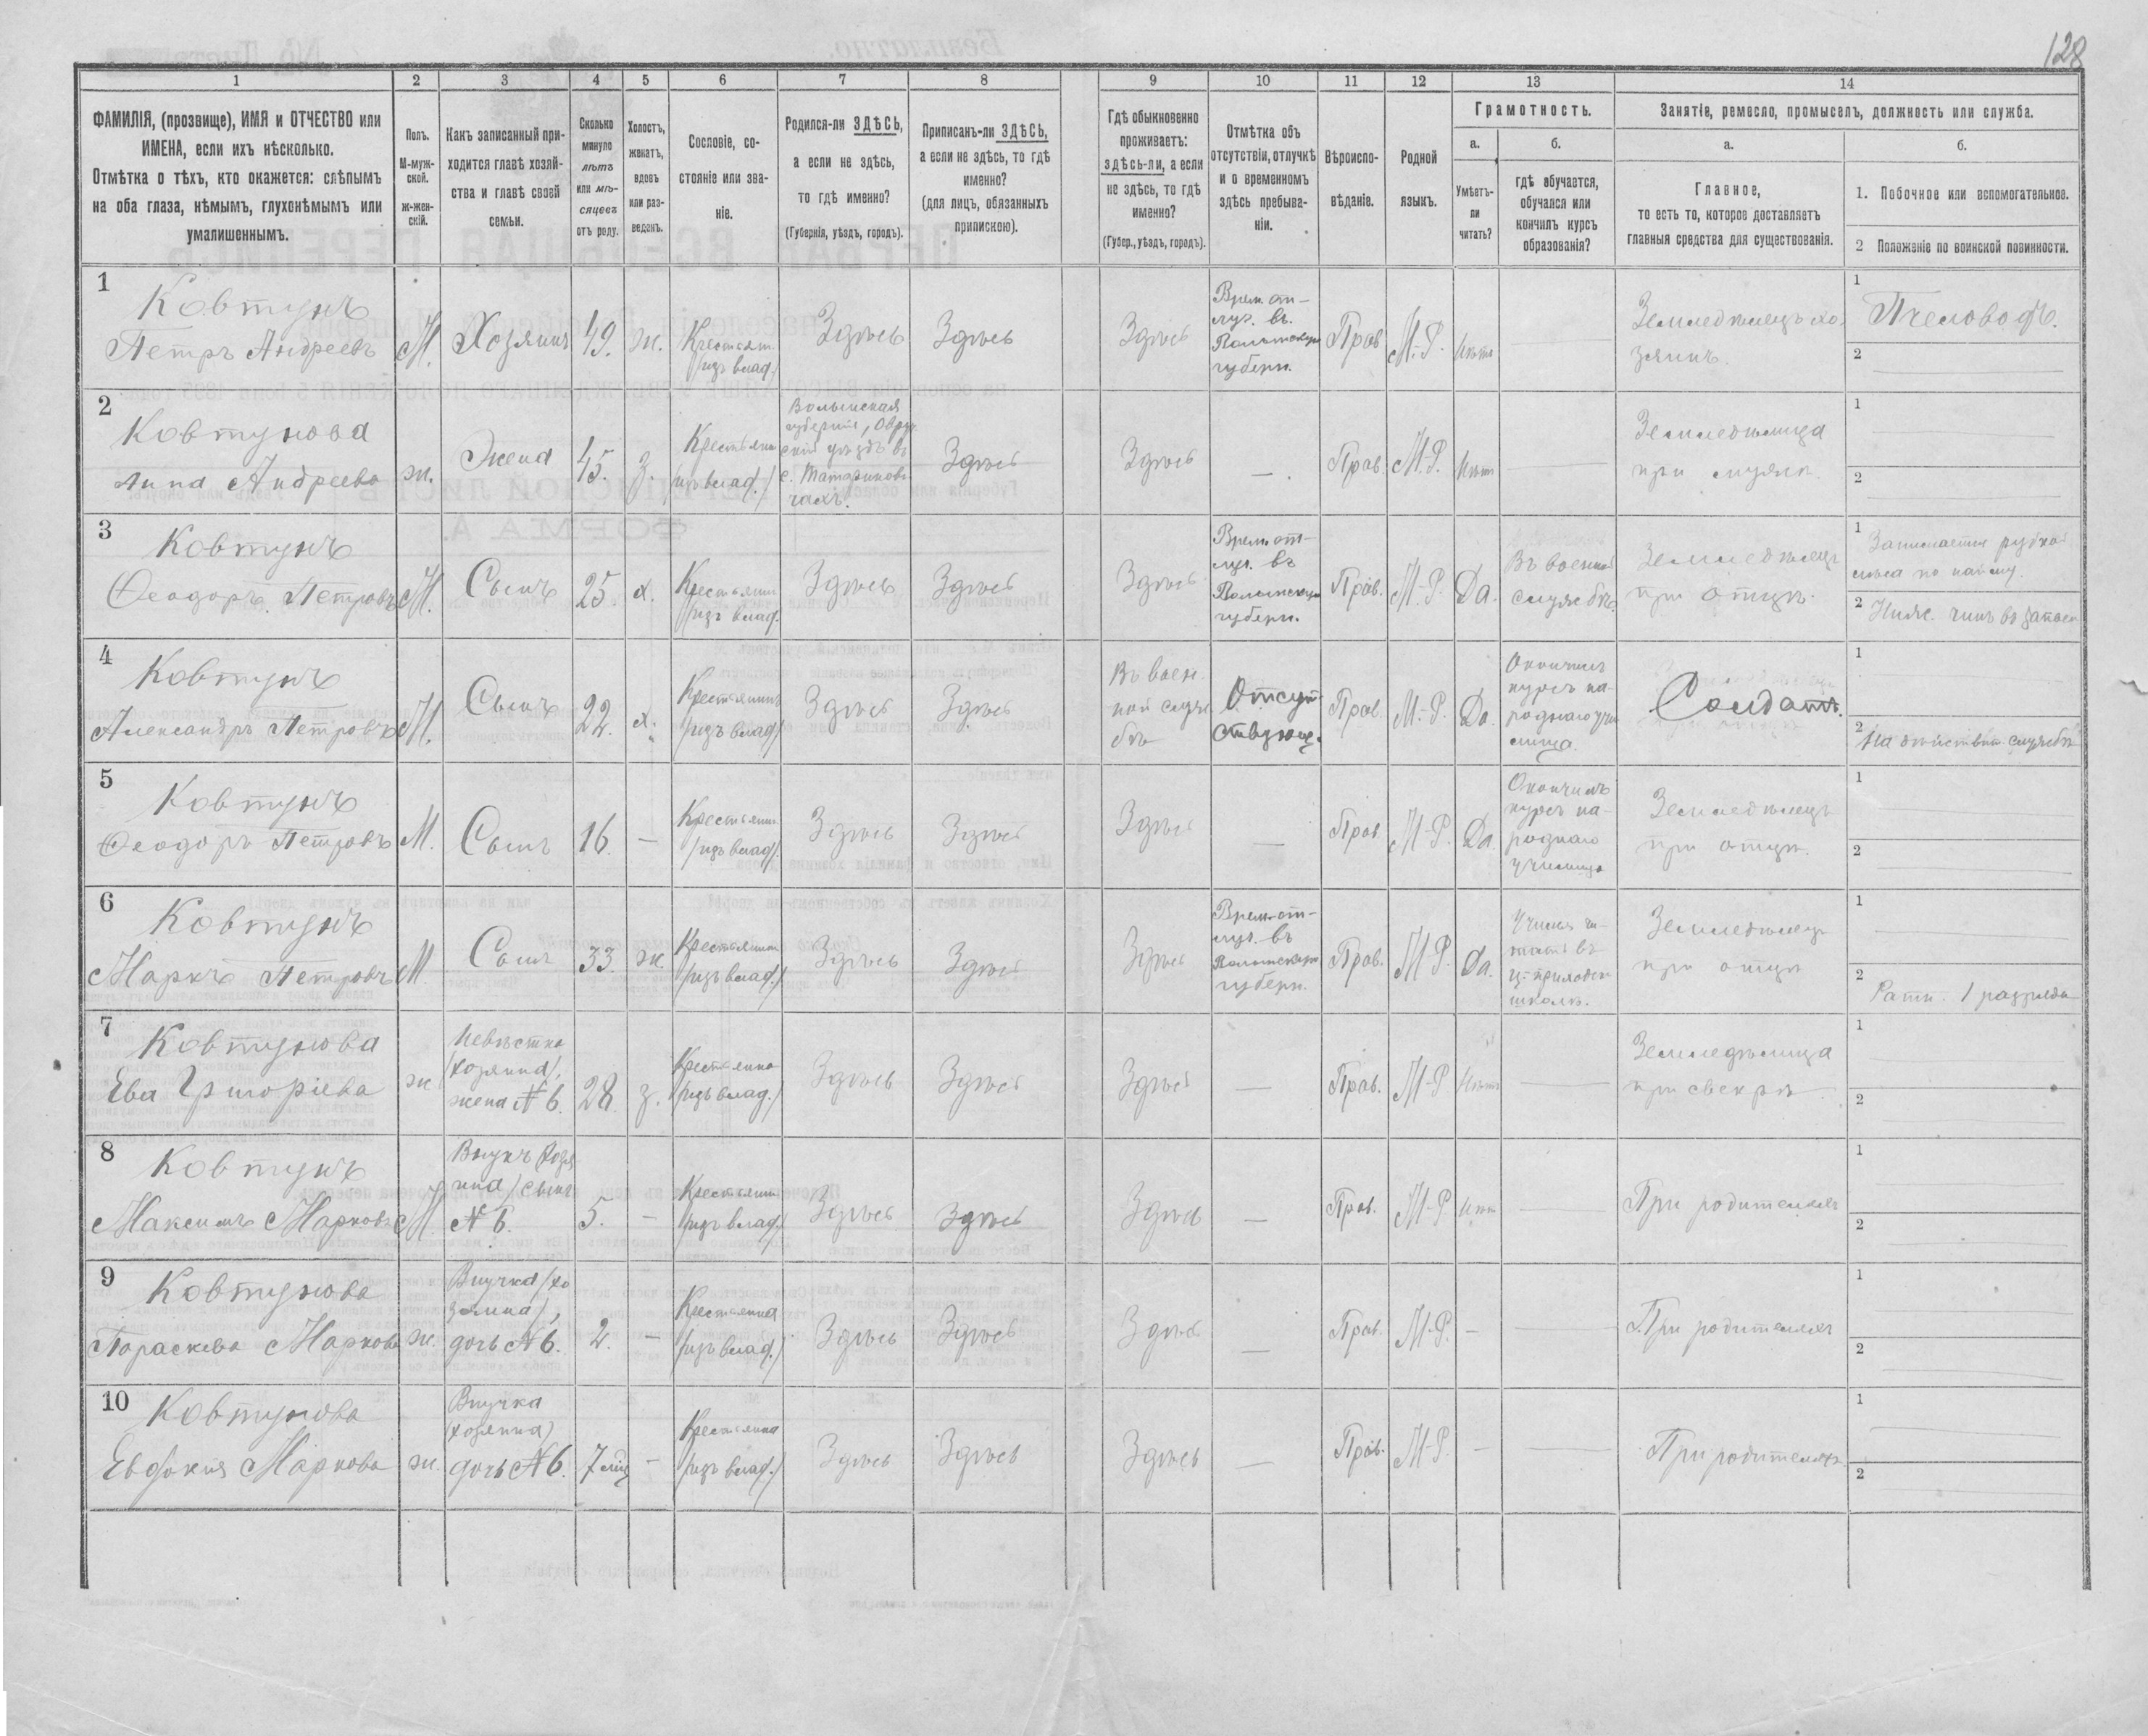 128
1 2 3 4 5 6 7 8 9 10 11 12 13 14
ФАМИЛІЯ, (прозвище), ИМЯ и ОТЧЕСТВО или
ИМЕНА, если ихъ нѣсколько.
Отмѣтка о тѣхъ, кто окажется: слѣпымъ
на оба глаза, нѣмымъ, глухонѣмымъ или
умалишеннымъ.
Полъ.
М-муж-
ской.
ж-жен-
скій.
Какъ записанный при-
ходится главѣ хозяй-
ства и главѣ своей
семьи.
Сколько
минуло
лѣтъ
или мѣ-
сяцевъ
отъ роду.
Холостъ,
женатъ,
вдовъ
или раз-
веденъ.
Сословіе, со-
стояніе или зва-
ніе.
Родился-ли ЗДѢСЬ,
а если не здѣсь,
то гдѣ именно?
(Губернія, уѣздъ, городъ).
Приписанъ-ли ЗДѢСЬ,
а если не здѣсь, то гдѣ
именно?
(для лицъ, обязанныхъ
припискою).
Гдѣ обыкновенно
проживаетъ:
здѣсь-ли, а если
не здѣсь, то гдѣ
именно?
(Губер., уѣздъ, городъ).
Отмѣтка объ
отсутствіи, отлучкѣ
и о временномъ
здѣсь пребыва-
ніи.
Вѣроиспо-
вѣданіе.
Родной
языкъ.
Грамотность.
а.
Умѣетъ-
ли
читать?
б.
гдѣ обучается,
обучался или
кончилъ курсъ
образованія?
Занятіе, ремесло, промыселъ, должность или служба.
а.
Главное,
то есть то, которое доставляетъ
главныя средства для существованія.
б.
1. Побочное или вспомогательное.
2 Положеніе по воинской повинности.
1
Ковтунъ
Петръ Андреевъ
М.
Хозяинъ
49.
ж.
Крестьян.
/изъ влад./
Здѣсь
Здѣсь
Здѣсь
Врем. от-
луч. въ
губерн.
Прав.
М-Р.
Нѣтъ
Земледѣлецъ хо-
зяинъ.
1
Пчеловодъ.
2
2
Ковтунова
Анна Андреева
ж.
Жена
45.
з.
Крестьянка
/изъ влад./
Волынская
губернія, Овруч-
скій уѣздъ въ
с. Татариновичахъ.
Здѣсь
Здѣсь
—
Прав.
М.-Р.
Нѣтъ
Земледѣлица
при мужѣ
1
2
3
Ковтунъ
Ѳеодоръ Петровъ
М.
Сынъ
25
х.
Крестьянин
/изъ влад.
Здѣсь
Здѣсь
Здѣсь
Врем. от-
луч. въ
губерн.
Прав.
М-Р.
Да.
Въ военной
службѣ.
Земледѣлец
при отцѣ.
1 Занимается рубкой
лѣса по найму.
2 Нижн. чинъ въ запасѣ
4
Ковтунъ
Александръ Петровъ
М.
Сынъ
22.
х.
Крестьянинъ
/изъ влад/
Здѣсь
Здѣсь
Въ воен-
ной служ-
бѣ
Отсут-
ствующ.
Прав.
М.-Р.
Да.
Окончилъ
курсъ на-
роднаго учи-
лища.
Солдатъ.
1
2 На дѣйствит. службѣ
5
Ковтунъ
Ѳеодоръ Петровъ
М.
Сынъ
16.
—
Крестьянин
/изъ влад/
Здѣсь
Здѣсь
Здѣсь
—
Прав.
М-Р.
Да.
Окончилъ
курсъ на-
роднаго
училища
Земледѣлецъ
при отцѣ.
1
2
6
Ковтунъ
Маркъ Петровъ
М.
Сынъ
33.
ж.
Крестьянин
/изъ влад./
Здѣсь
Здѣсь
Здѣсь
Врем. от-
луч. въ
губерн.
Прав.
М-Р.
Да.
Учился чи-
тать въ
ц-приходск.
школѣ.
Земледѣлец
при отцѣ
1
2
Ратн. 1 разряда
7
Ковтунова
Ева Григоріева
ж
Невѣстка
/хозяина/,
жена №6.
28.
з.
Крестьянка
/изъ влад./
Здѣсь
Здѣсь
Здѣсь
—
Прав.
М-Р
Нѣтъ
Земледѣлица
при свекрѣ.
1
2
8
Ковтунъ
Максимъ Марковъ
М.
Внукъ /хозя-
ина/ сынъ
№6.
5.
—
Крестьянин
/изъ влад/
Здѣсь
Здѣсь
Здѣсь
—
Прав.
М-Р
Нѣтъ
При родителяхъ
1
2
9
Ковтунова
Параскева Маркова
ж.
Внучка /хо-
зяина/,
дочь №6.
2.
—
Крестьянка
/изъ влад./
Здѣсь
Здѣсь
Здѣсь
—
Прав.
М-Р.
—
При родителяхъ
1
2
10
Ковтунова
Евдокия Маркова
ж.
Внучка
/хозяина/
дочь №6.
7 мѣс
—
Крестьянка
/изъ влад./
Здѣсь
Здѣсь
Здѣсь
—
Прав.
М-Р
—
При родителяхъ.
1
2